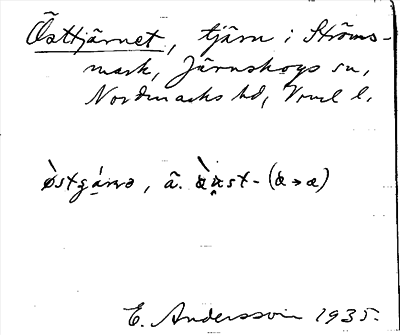 Östtjärnet, tjärn i Ströms-
mark, Järnskogs sn,
Nordmarks hd, Vrml l.
E. Andersson 1935.